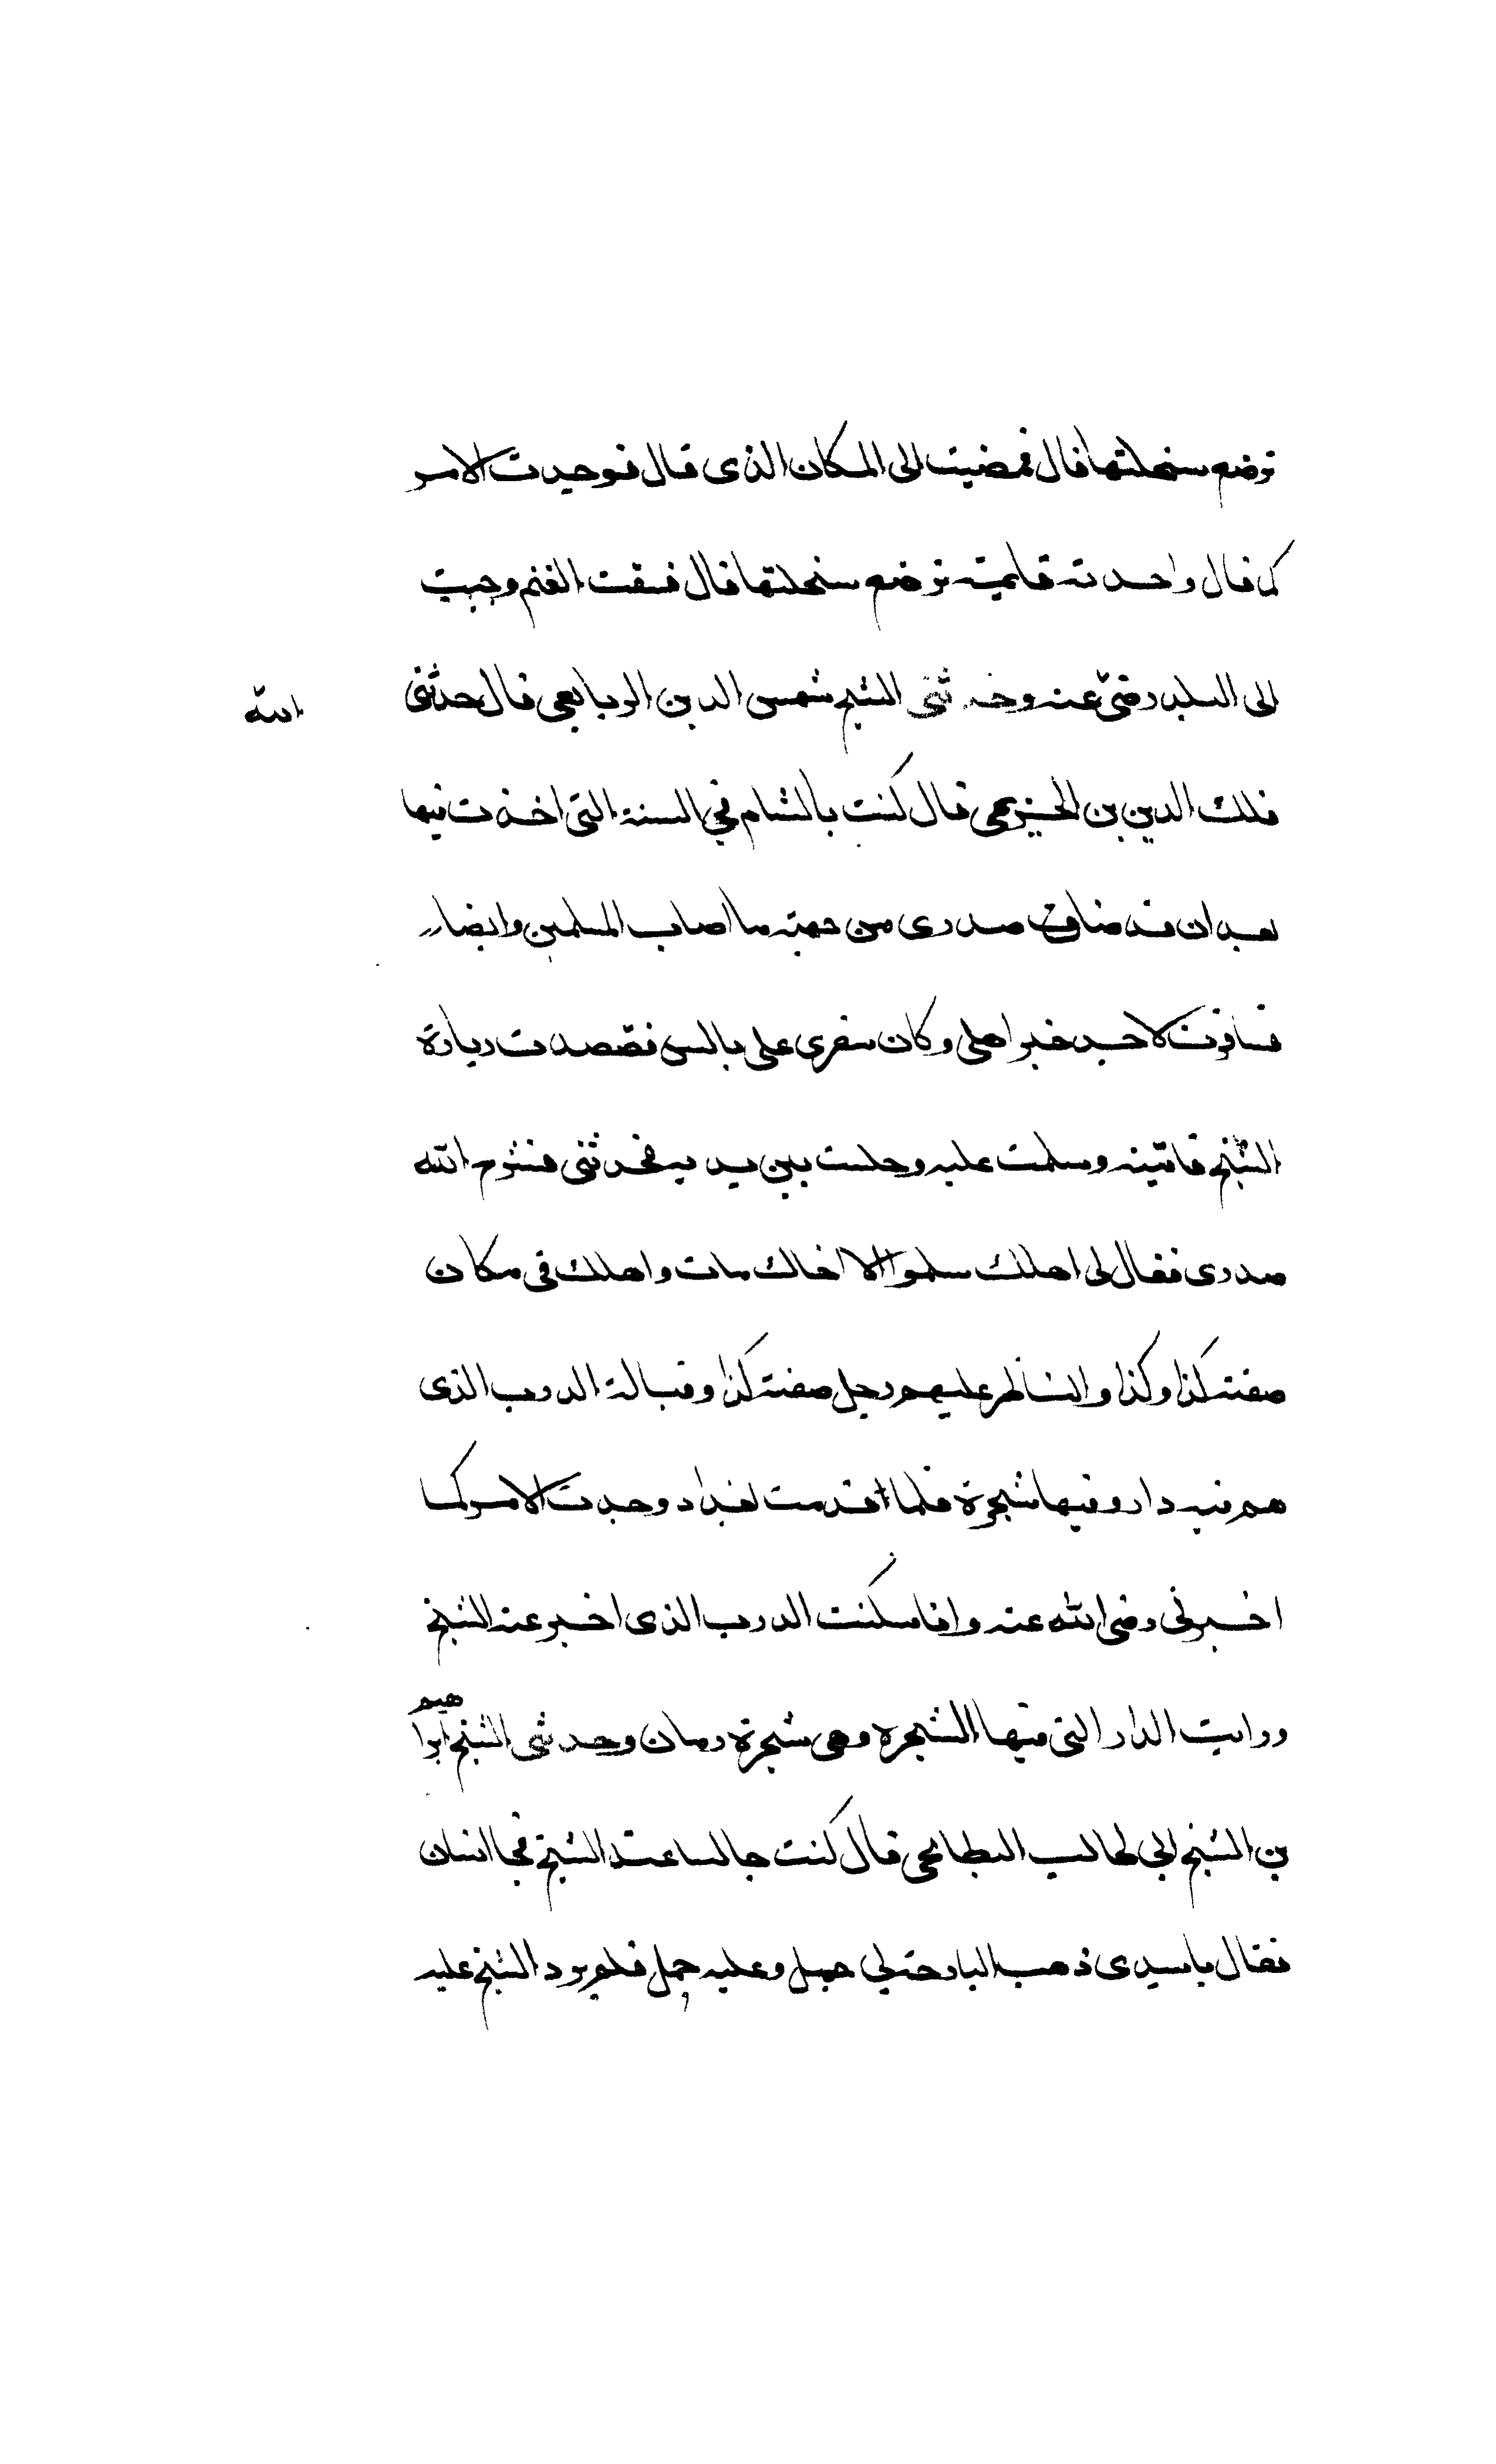 ترضع سخلتها قال فمضيت الى المكان الذى قال فوجدت الامر
كما قال واحدته قايمة ترضع سخلتها قال فسقت الغنم وجيت
الى البلد رضى عنه وحدثنى الشيخ شمس الدين الربايعى قال حدثنى
الله
فلك الدين بن الخزيمى قال كنت بالشام فى السنة التى اخذت فيها
بغداد وقد ضاق صدرى من جهة ما اصاب المسلمين وايضا
فسافرت لاجد خبر اهلى وكان سفرى على بالس فقصدت زيارة
الشيخ فاتيته وسلمت عليه وجلست بين يديه فحدثنى فشرح الله
صدرى فقال لى اهلك سلموا الا اخاك مات واهلك فى مكان
صفته كذا وكذا والناظر عليهم رجل صفته كذا وقبالة الدرب الذى
هم فيه دار وفيها شجرة فلما قدمت بغداد وجدت الامر كما
اخبرنى رضى الله عنه وانا سكنت الدرب الذى اخبر عنه الشيخ
ورايت الدار التى فيها الشجره وهى شجرة رمان وحدثنى الشيخ ابراهيم
بن الشيخ ابى طالب البطايحى قال كنت جالسا عند الشيخ فجا انسان
فقال ياسيدى ذهب البارحة لى جمل وعليه حمل فلم يرد الشيخ عليه